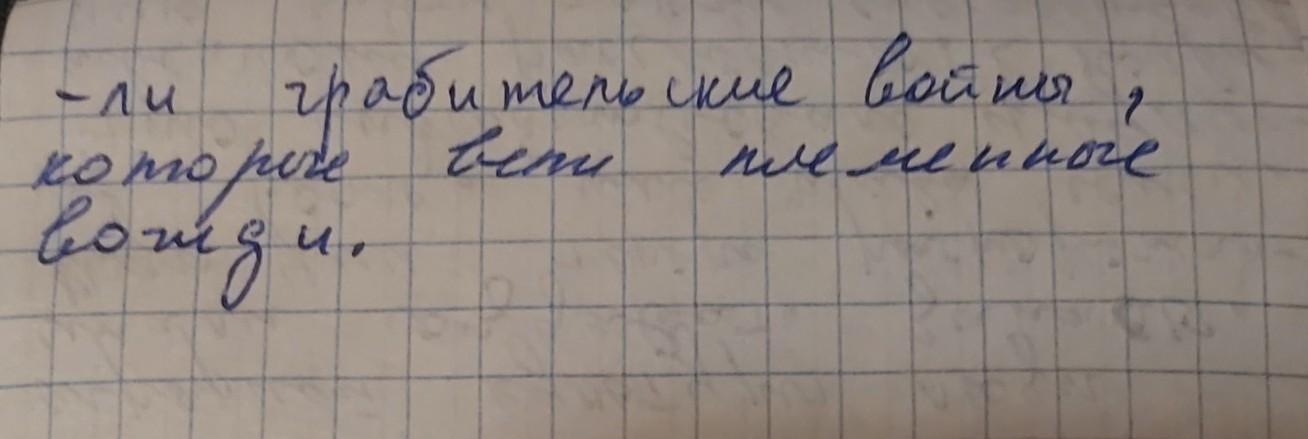 -ли грабительские войны,
которые вели племенные
вожди.